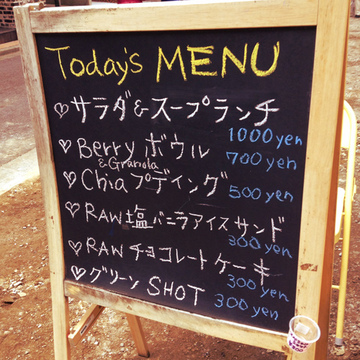 Today's MENU
♡サラダ&スープランチ
1000yen
♡Berryボウル
& Granola
700yen
♡Chiaプディング
500yen
♡RAW塩バニラアイスサンド
300yen
♡RAWチョコレートケーキ
300yen
♡グリーンSHOT
300yen